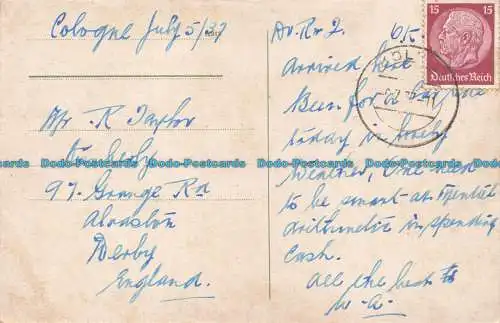 Cologne July 5/39
Mr. R Taylor
97. Grange Rd
Alvaston
Derby
England.
Arrived here
Been for a
today in lovely
weather, one need
to be smart at mental
arithmetic in spending
cash.
All the best to
W-A-
15 15
Deutsches Reich
Dodo-Postcards Dodo-Postcards Dodo-Postcards Dodo-Postcards Dodo-Postcards